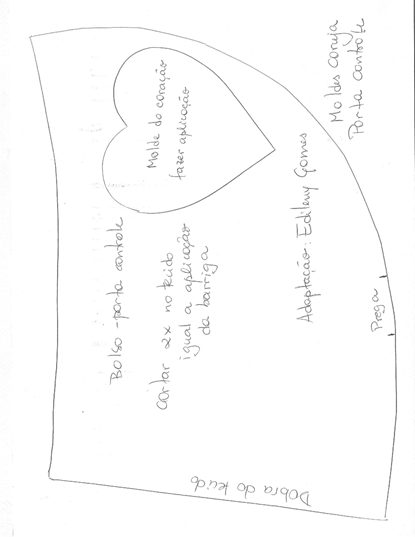 Moldes coruja
Porta controle
Molde do coração
fazer aplicação
Bolso - porta controle
Cortar 2x no tecido
igual a aplicação
da barriga
Adaptação: Edileny Gomes
Prega
Dobra do tecido